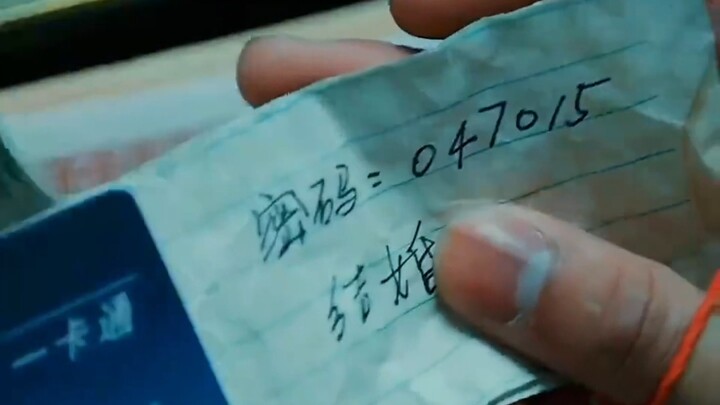 密码：047015
结婚
一卡通